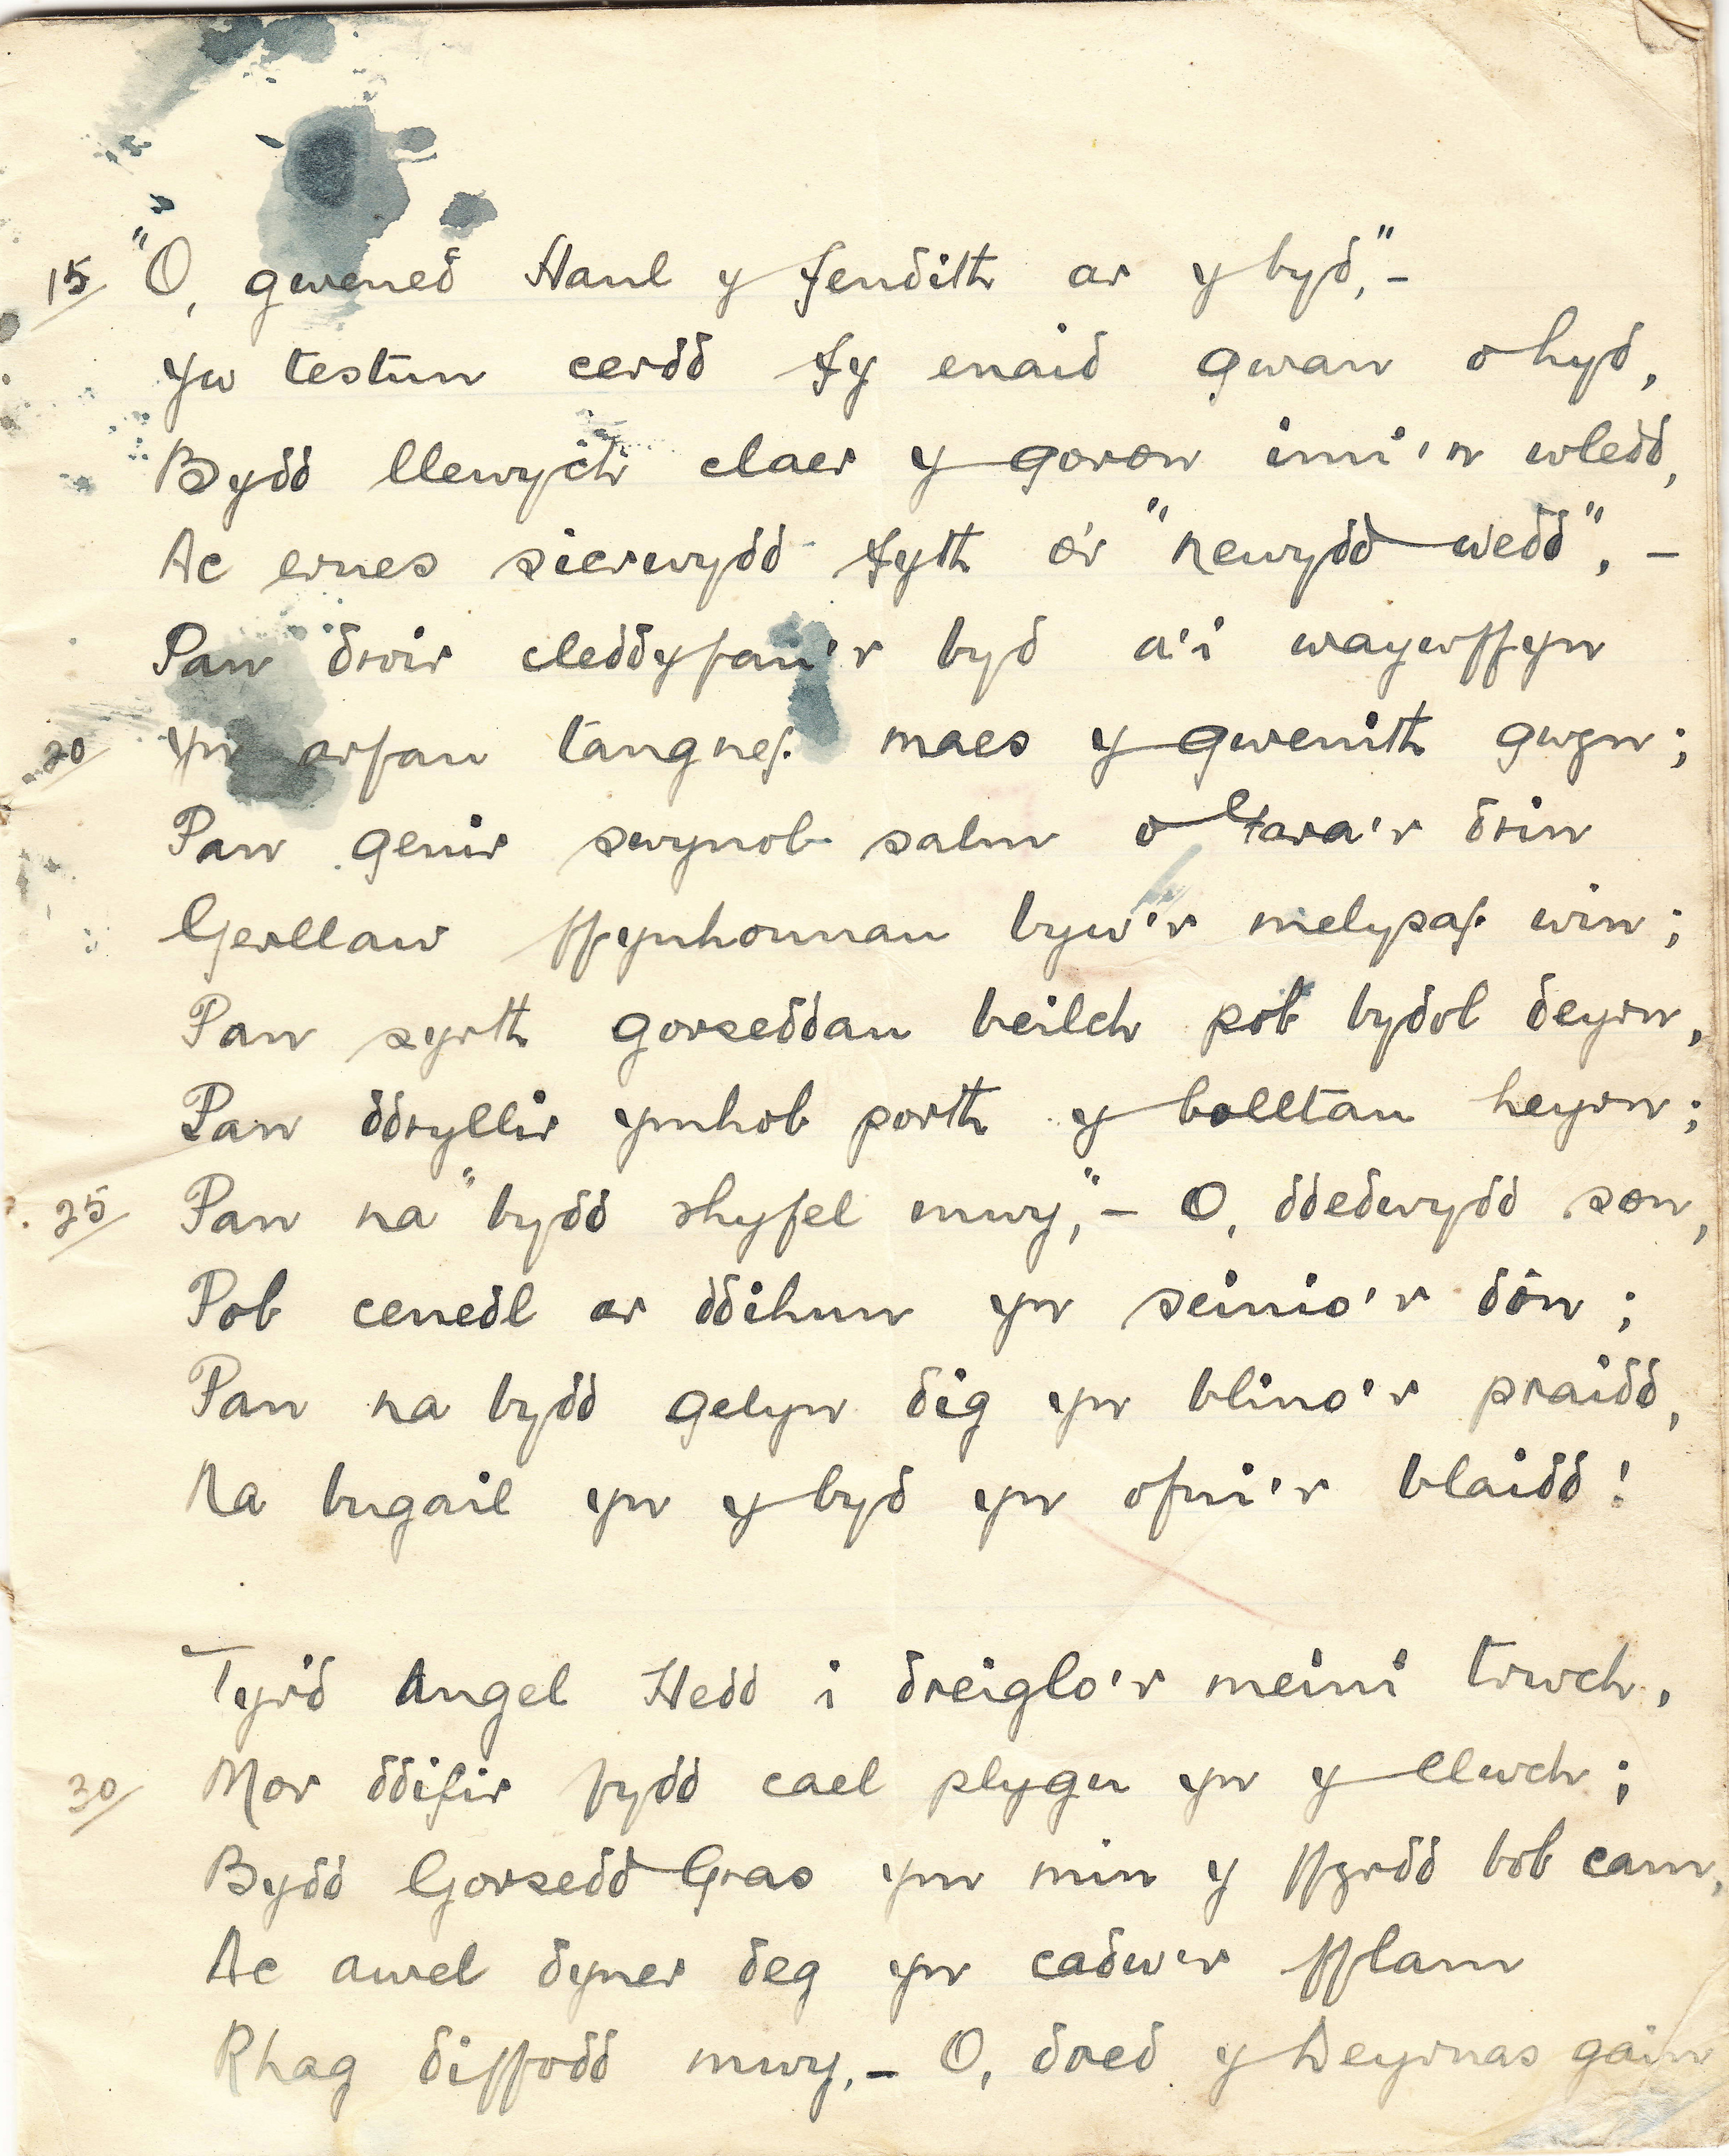 15 "O, gwened Haul y fendith ar y byd,"-
Yw testun cerdd fy enaid gwan o hyd,
Bydd llewych claer y goron imi'n wledd,
Ac ernes sicrwydd fyth o'r "newydd wedd", -
Pan droir cleddyfau'r byd a'i waywffyn
20 Yn arfau tangnef maes y gwenith gwyn;
Pan genir swynol salm o Gara'r drin
Gerllaw ffynhonnau byw'r melysaf win;
Pan syrth gorseddau beilch pob bydol deyrn,
Pan ddryllir ymhob porth y bolltau heyrn;
25 Pan na "bydd rhyfel mwy,"- O, ddedwydd son,
Pob cenedl ar ddihun yn seinio'r dôn;
Pan na bydd gelyn dig yn blino'r praidd,
Na bugail yn y byd yn ofni'r blaidd!
Tyrd Angel Hedd i dreiglo'r meini trwch,
30 Mor ddifir fydd cael plygu yn y llwch;
Bydd Gorsedd Gras ym min y ffyrdd bob cam,
Ac awel dyner deg yn cadw'r fflam
Rhag diffodd mwy,- O, dred y Deyrnas gain